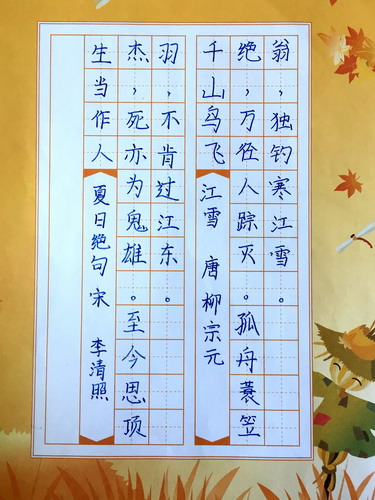 生当作人 夏日绝句 宋 李清照
杰,死亦为鬼雄。至今思项
羽,不肯过江东。
千山鸟飞 江雪 唐 柳宗元
绝,万径人踪灭。孤舟蓑笠
翁,独钓寒江雪。